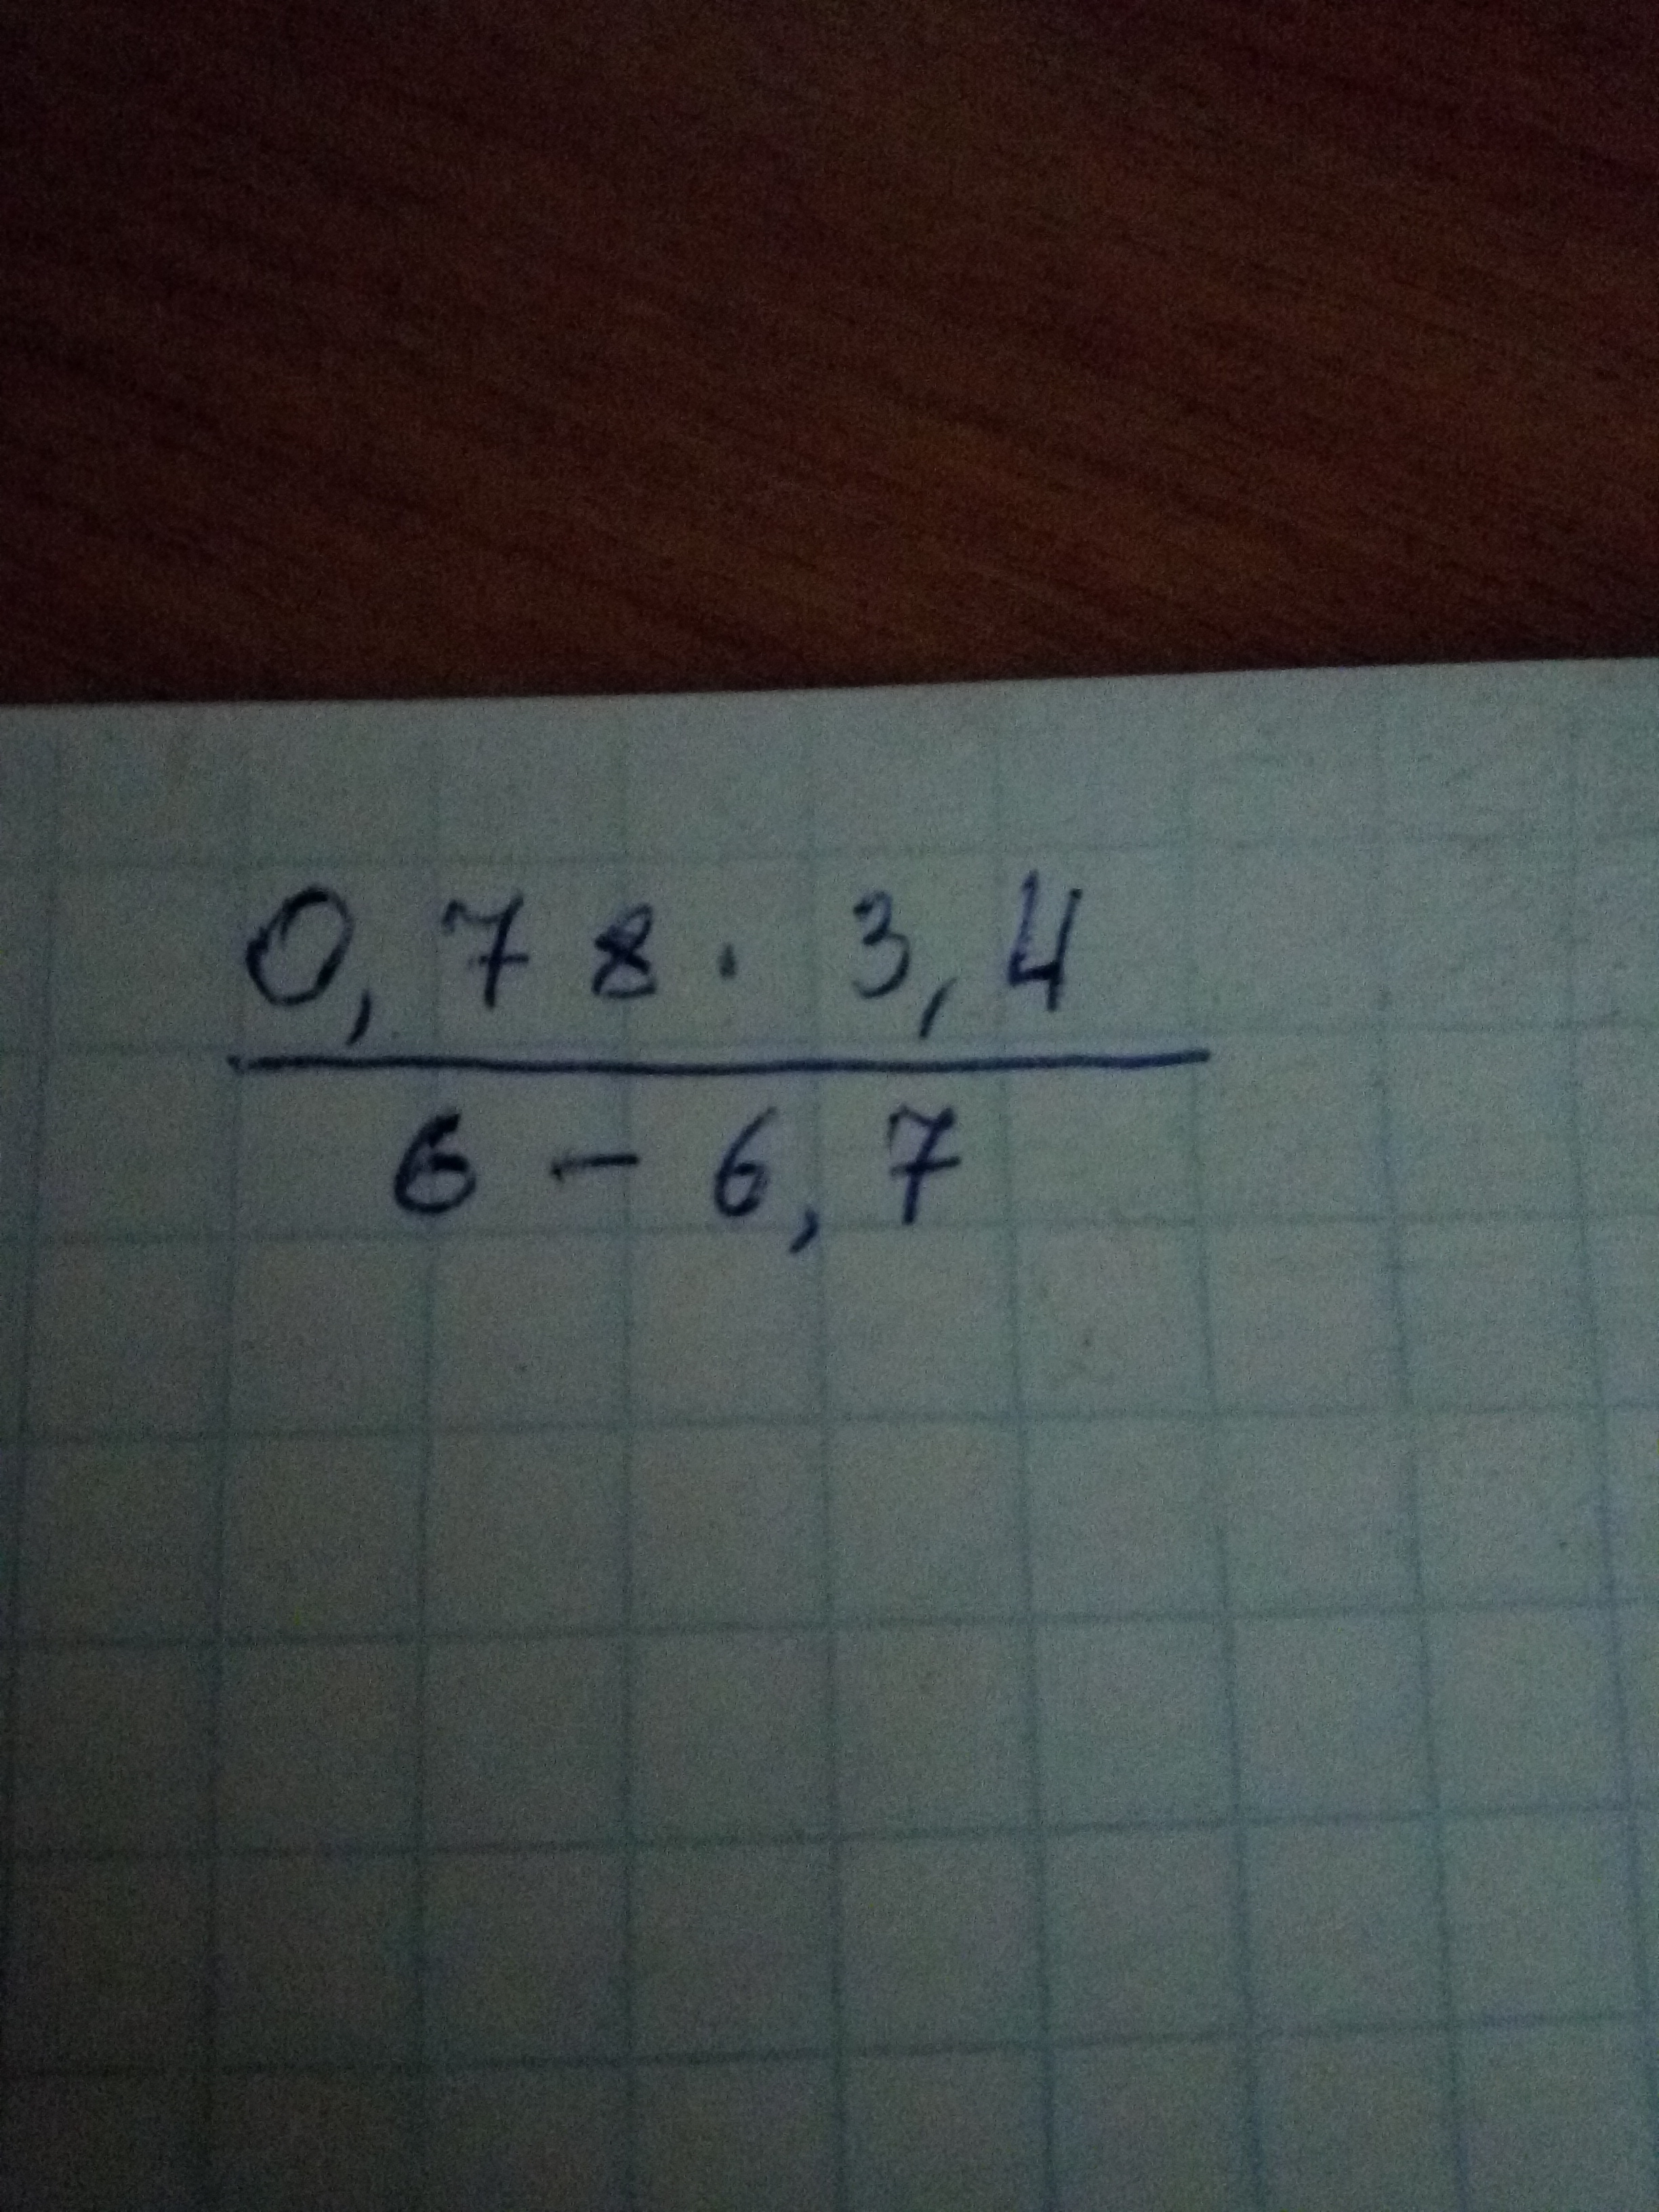 0,78 · 3,4
6 - 6,7